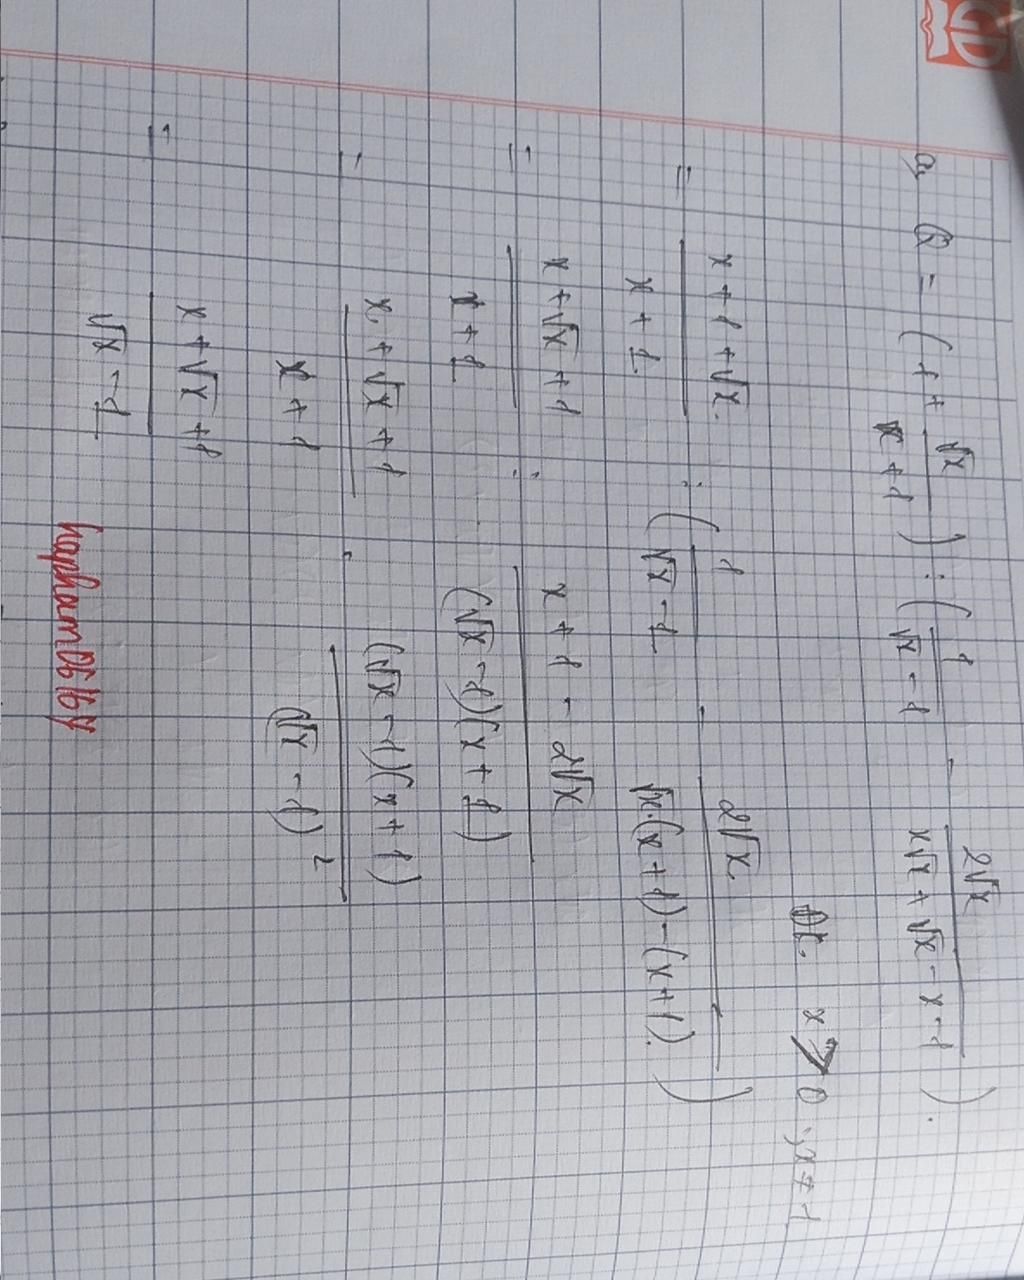 a, Q = (1 + √x / x + 1) : (1 / √x - 1 - 2√x / x√x + √x - x - 1).
Đk. x ≥ 0 ; x ≠ 1
= x + 1 + √x. / x + 1 : (1 / √x - 1 - 2√x. / √x.(x + 1) - (x + 1).)
= x + √x + 1 / x + 1 : x + 1 - 2√x / (√x - 1)(x + 1)
= x + √x + 1 / x + 1 . (√x - 1)(x + 1) / (√x - 1)²
= x + √x + 1 / √x - 1